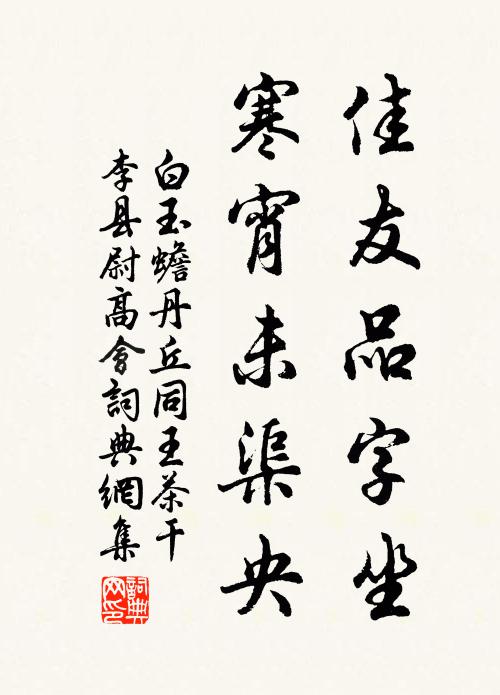 佳友品字坐
寒宵未渠央
白玉蟾丹丘同王茶干
李县尉高會詞典網集
詞典網印